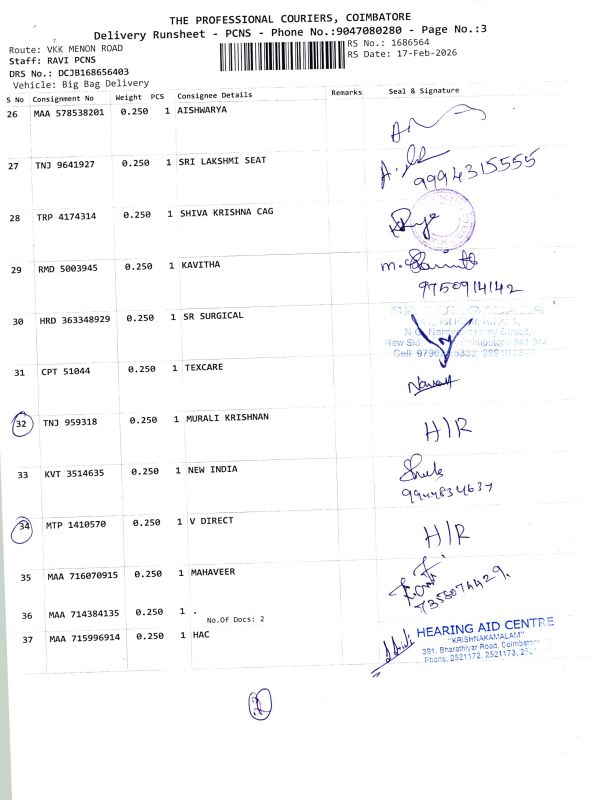 THE PROFESSIONAL COURIERS, COIMBATORE
Delivery Runsheet - PCNS - Phone No.:9047080280 - Page No.:3
Route: VKK MENON ROAD
RS No.: 1686564
Staff: RAVI PCNS
RS Date: 17-Feb-2026
DRS No.: DCJB168656403
Vehicle: Big Bag Delivery
S No Consignment No Weight PCS Consignee Details Remarks Seal & Signature
26 MAA 578538201 0.250 1 AISHWARYA
27 TNJ 9641927 0.250 1 SRI LAKSHMI SEAT
9994315555
28 TRP 4174314 0.250 1 SHIVA KRISHNA CAG
29 RMD 5003945 0.250 1 KAVITHA
9750914142
30 HRD 363348929 0.250 1 SR SURGICAL
31 CPT 51044 0.250 1 TEXCARE
32 TNJ 959318 0.250 1 MURALI KRISHNAN H/R
33 KVT 3514635 0.250 1 NEW INDIA
9944834637
34 MTP 1410570 0.250 1 V DIRECT H/R
35 MAA 716070915 0.250 1 MAHAVEER
36 MAA 714384135 0.250 1 .
No.Of Docs: 2
37 MAA 715996914 0.250 1 HAC
HEARING AID CENTRE
"KRISHNAKAMALAM"
391, Bharathiyar Road,
Phone: 2521172, 2521173,